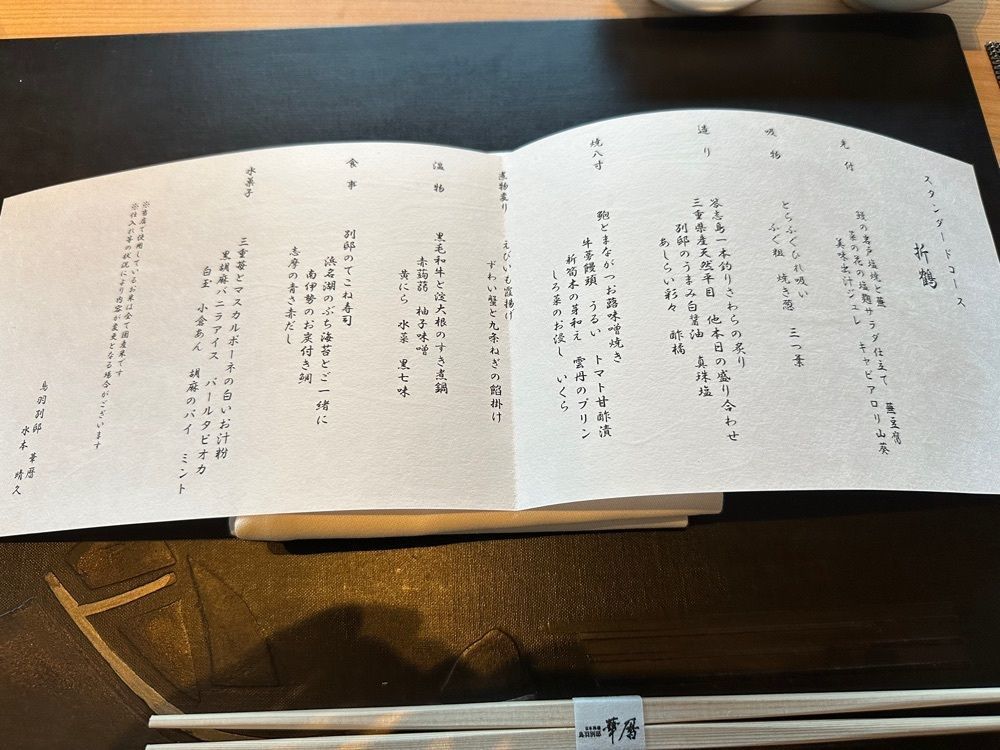 スタンダードコース
折鶴
先付
鮑の岩戸塩焼と蕪サラダ仕立て 蕪豆腐
菜の花の塩麹 キャビア ロリ山葵
美味出汁ジュレ
吸物
とらふぐひれ吸い
ふぐ粗 焼き葱 三つ葉
造り
答志島一本釣りさわらの炙り
三重県産天然平目 他本日の盛り合わせ
別邸のうまみ白醤油 真珠塩
あしらい彩々 酢橘
焼八寸
鮑とまながつお蕗味噌焼き
牛蒡饅頭 うるい トマト甘酢漬
折筍木の芽和え 雲丹のプリン
しろ菜のお浸し いくら
煮物変り
えびいも霞揚げ
ずわい蟹と九条ねぎの餡掛け
温物
黒毛和牛と淀大根のすき煮鍋
赤蒟蒻 柚子味噌
黄にら 水菜 黒七味
食事
別邸のてこね寿司
浜名湖のぶち海苔とご一緒に
南伊勢のお炭付き鯛
志摩の青さ赤だし
水菓子
三重苺とマスカルポーネの白いお汁粉
黒胡麻バニラアイス パールタピオカ
白玉 小倉あん 胡麻のパイ ミント
※当店で使用しているお米は全て国産米です
※仕入れ等の状況により内容が変更となる場合がございます
鳥羽別邸 華暦
水本 晴久
鳥羽別邸 華暦